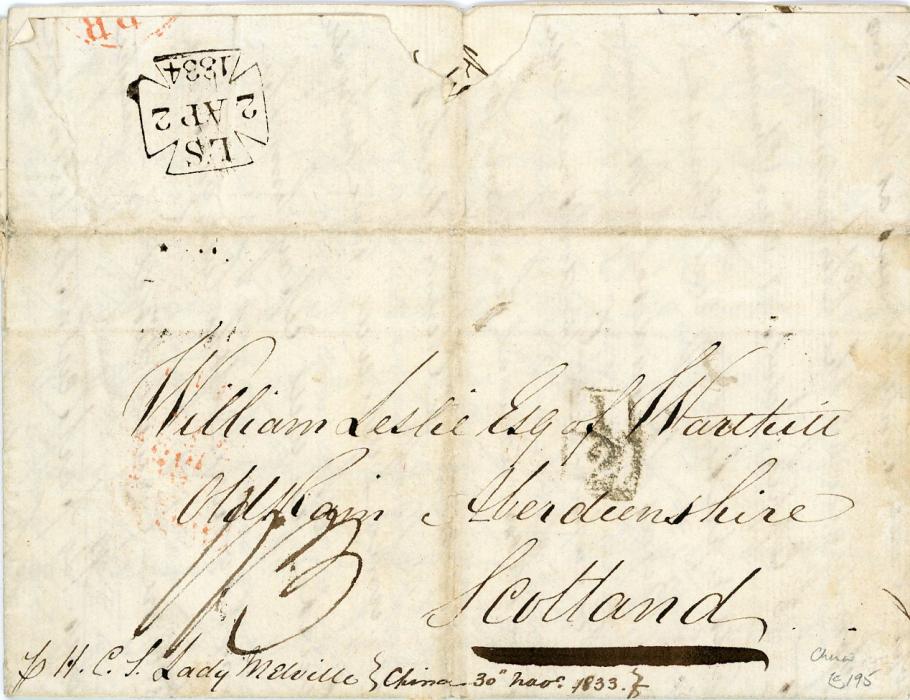 1834
2 AP 2
LS
William Leslie Esq of Warthill
Old Rain Aberdeenshire
1/3
Scotland
½
p H. C. S. Lady Melville } China 30" Novr. 1833. }
China
£195